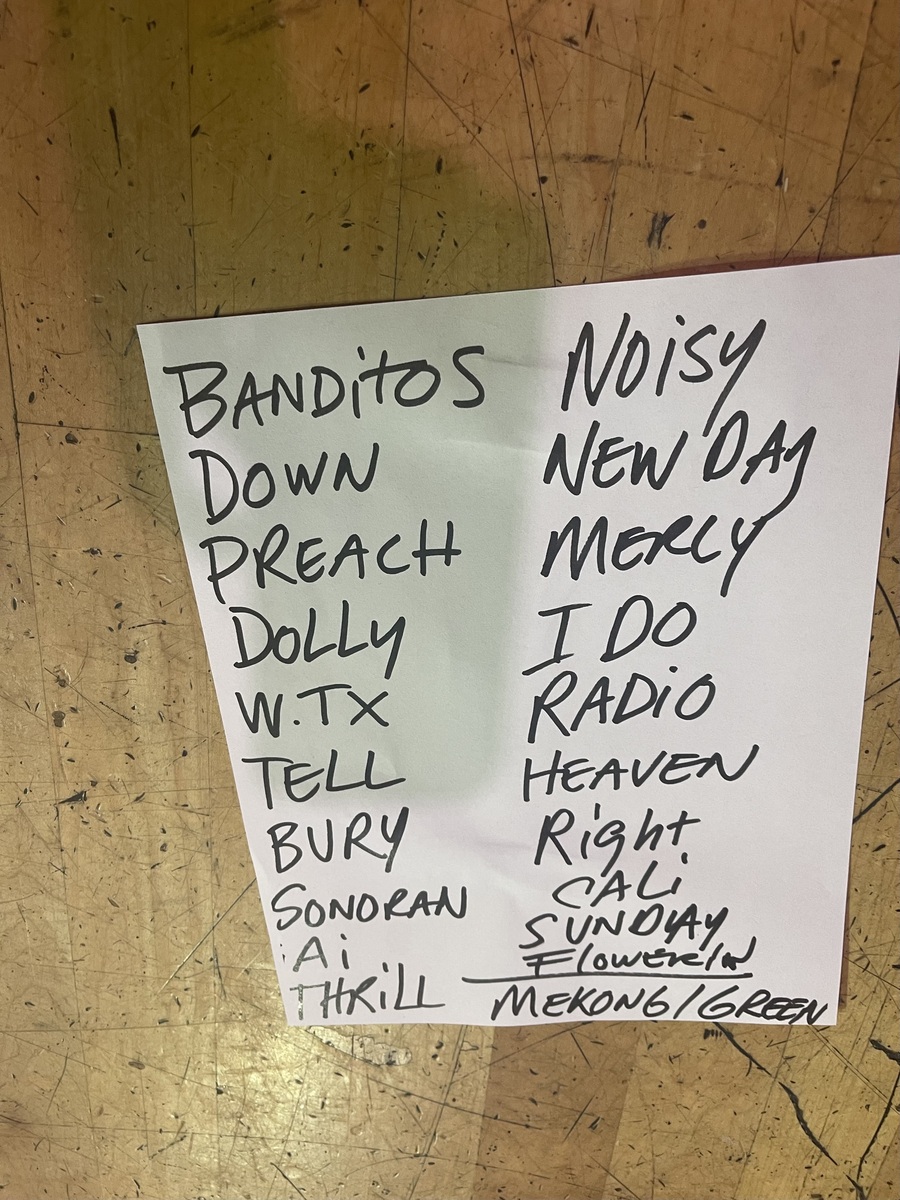 BANDitOS
DOWN
PREACH
DOLLy
W.TX
TELL
BURY
SONORAN
Ai
THRiLL
NOiSY
NEW DAy
MERCY
I DO
RADiO
HEAVEN
Right
CALi
SUNDAY
MEKONG/GREEN